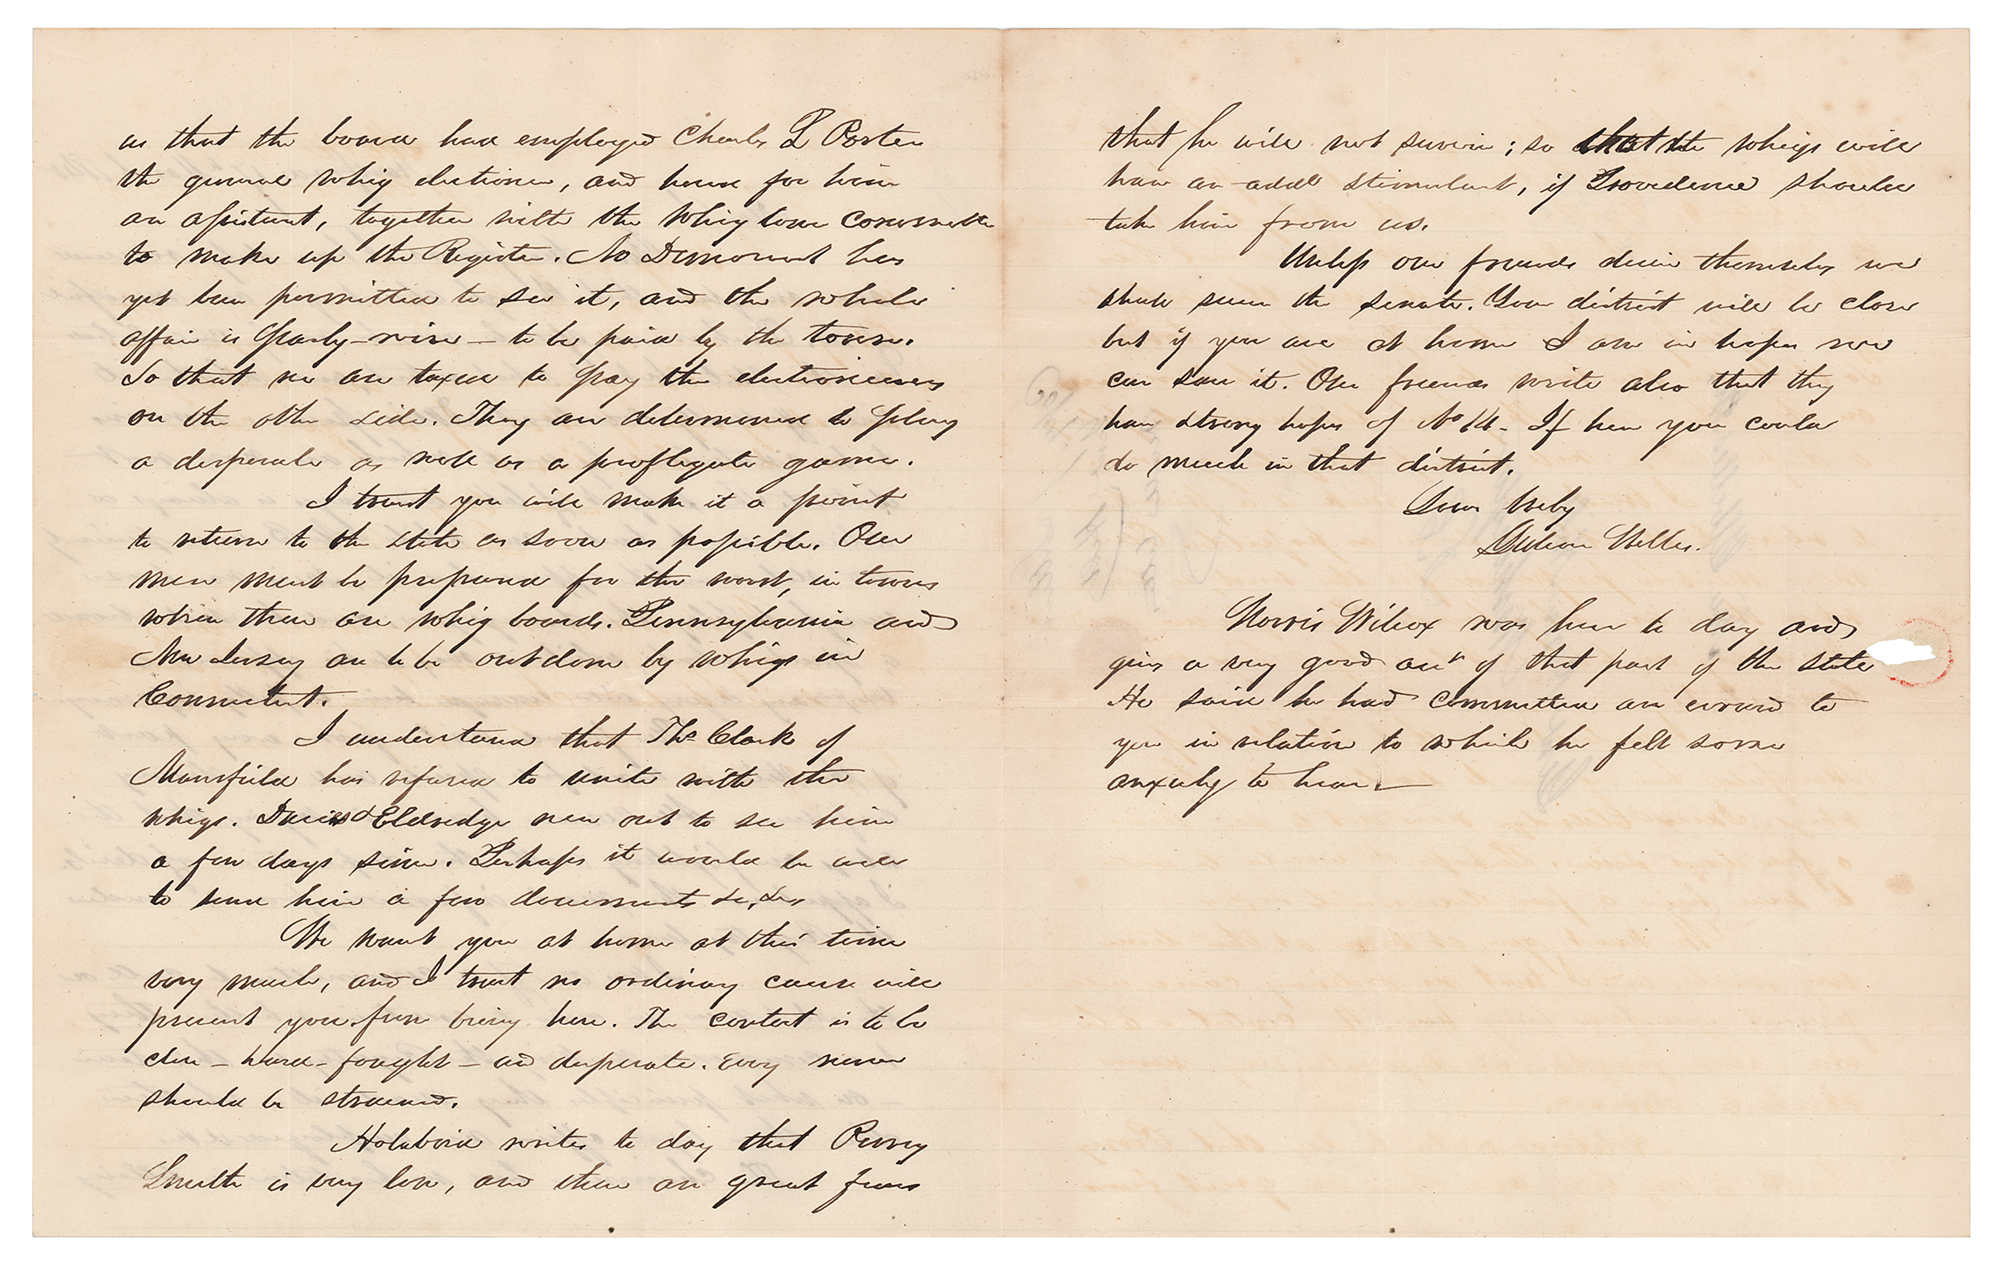 us that the board had employed Charles L Porter
the general whig electioneer, and house for him
an assistant, together with the Whig town committee
to make up the Register. No Democrat has
yet been permitted to see it, and the whole
affair is Glarly-wise — to be paid by the town.
So that we are taxed to pay the electioneerers
on the other side. They are determined to play
a desperate as well as a profligate game.
I trust you will make it a point
to return to the state as soon as possible. Our
men must be prepared for the worst, in towns
where there are whig boards. Pennsylvania and
New Jersey are to be outdone by whigs in
Connecticut.
I understand that Ths Clark of
Mansfield has refused to unite with the
whigs. Davis & Eldredge were out to see him
a few days since. Perhaps it would be well
to send him a few documents &c, &c,
We want you at home at this time
very much, and I trust no ordinary cause will
prevent you from being here. The contest is to be
close — hard-fought — and desperate. Every nerve
should be strained.
Holabird writes to day that Perry
Smith is very low, and there are great fears
that he will not survive; so that the whigs will
have an addl stimulant, if Providence should
take him from us.
Unless our friends deceive themselves we
shall secure the senate. Your district will be close
but if you are at home I am in hopes we
can save it. Our friends write also that they
have strong hopes of No 14. If here you could
do much in that district.
Yours truly
Gideon Welles.
Norris Wilcox was here to day and
gives a very good acct of that part of the state
He said he had committed an errand to
you in relation to which he felt some
anxiety to hear. —